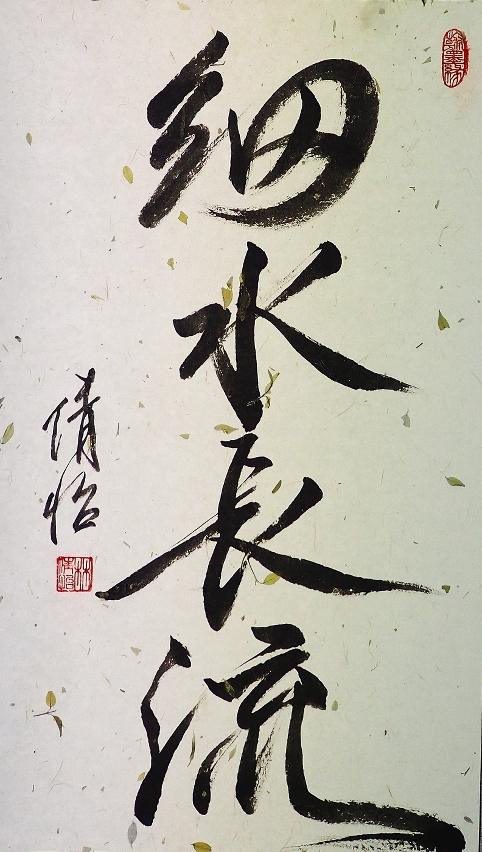 細水長流
倩怡